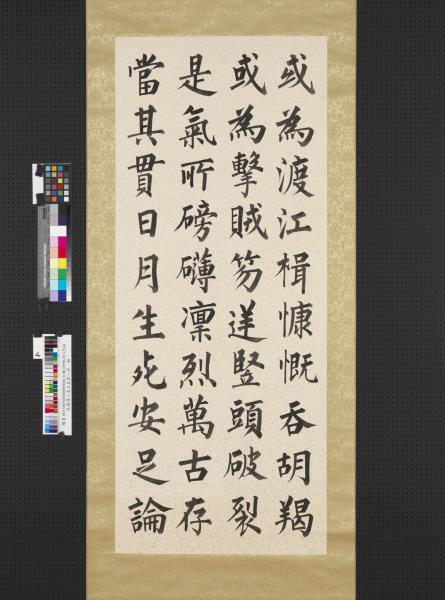 或為渡江楫慷慨吞胡羯
或為擊賊笏逆豎頭破裂
是氣所磅礴凜烈萬古存
當其貫日月生死安足論